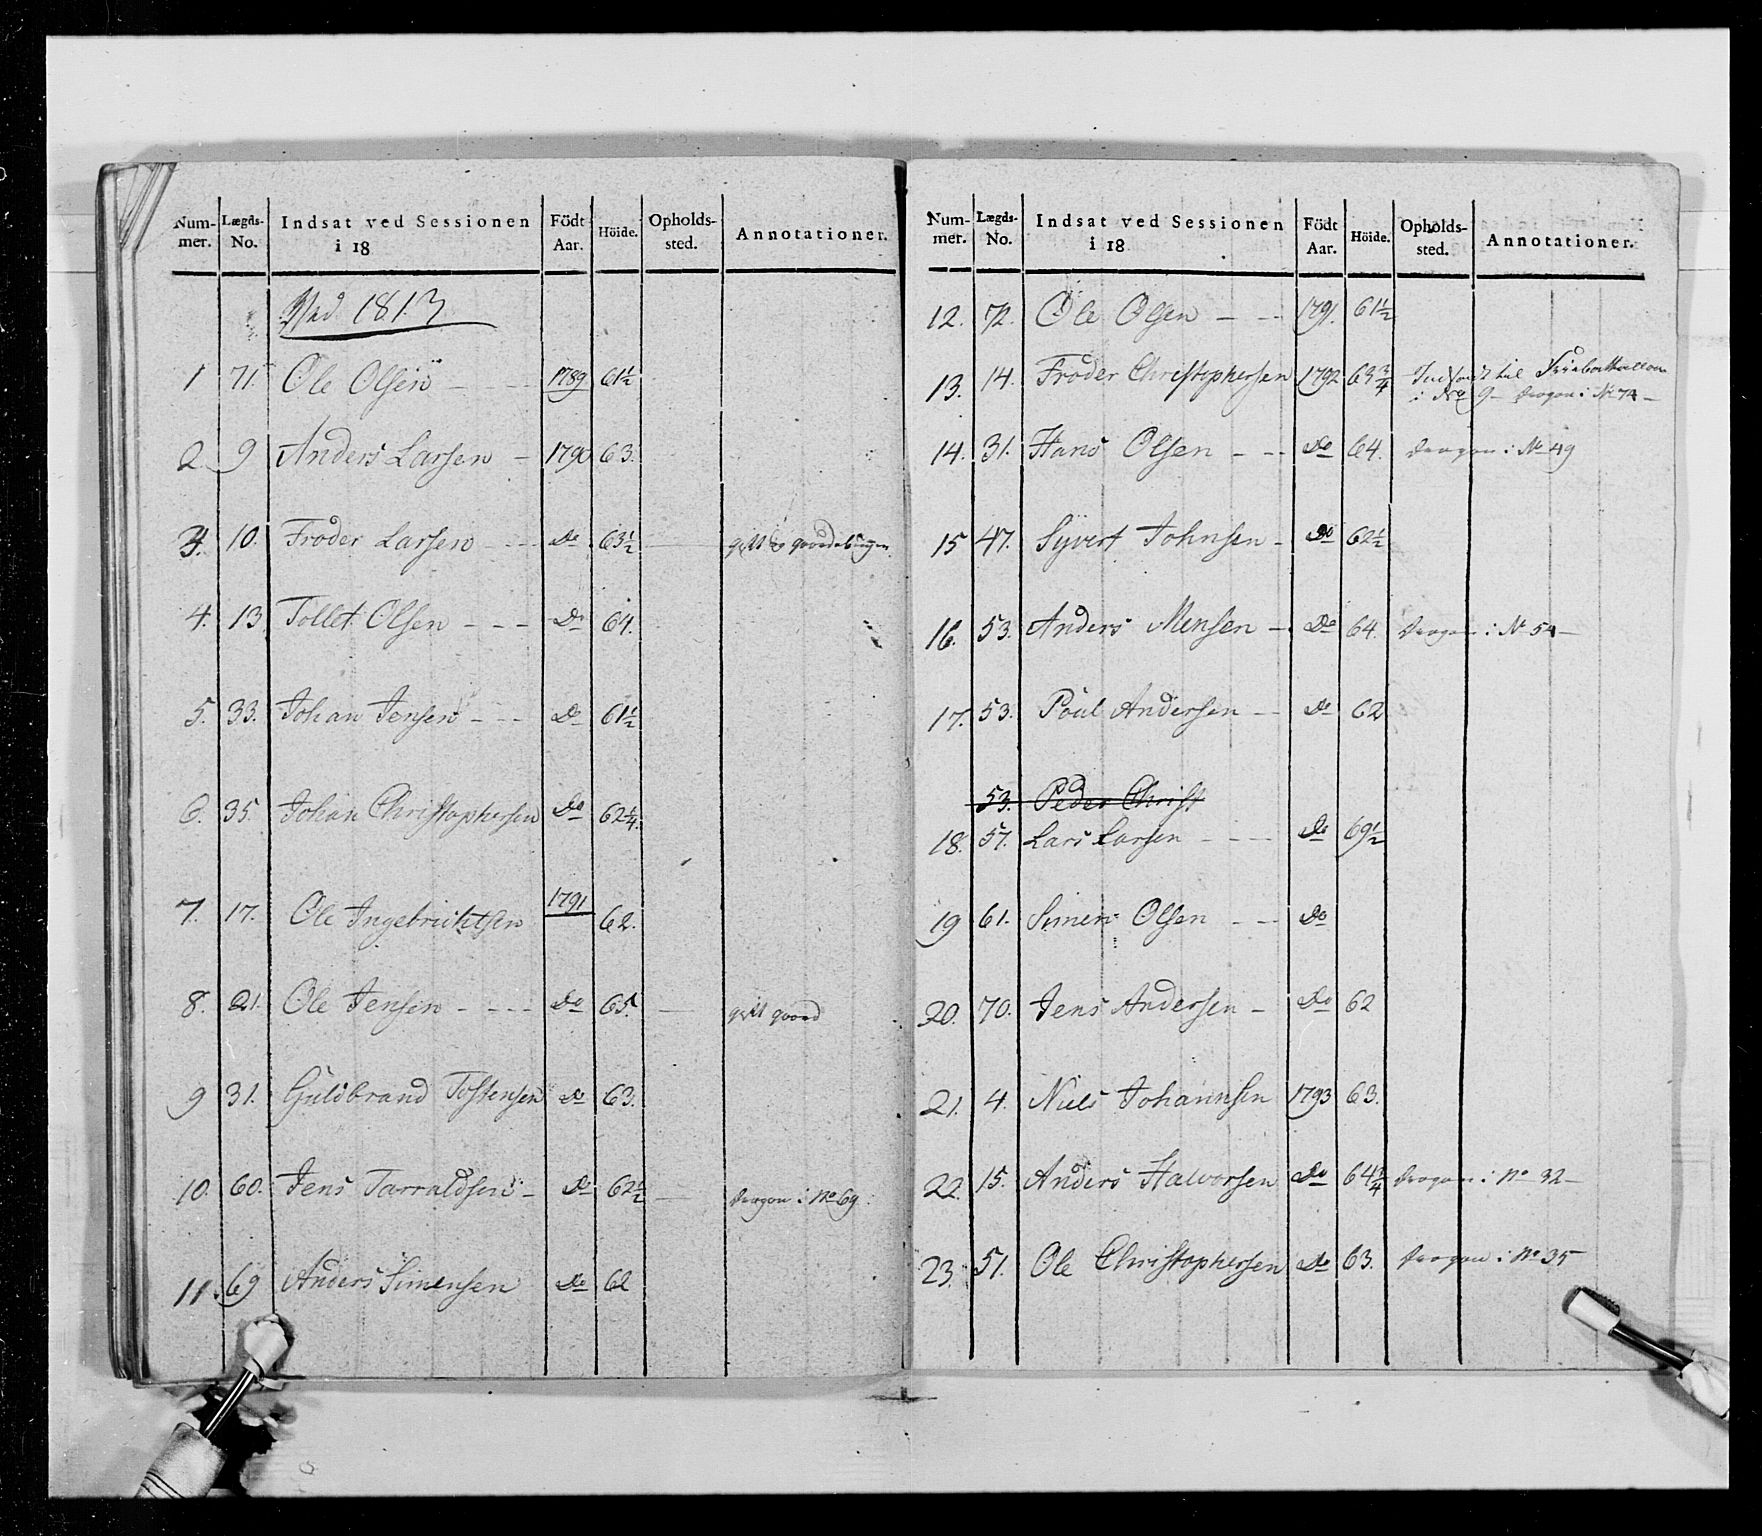 Num-mer. Lægds-No. Indsat ved Sessionen i 18 Födt Aar. Höide. Opholds-sted. Annotationer.
Ved 1813
1 71. Ole Olsen - - 1789 61½
2 9 Anders Larsen - 1790 63.
3. 10. Froder Larsen - - Do 63½ gift
4. 13 Tollet Olsen - - - Do 64.
5. 33. Johan Jensen - - - Do 61½
6. 35. Johan Christophersen Do 62¼.
7. 17. Ole Ingebrichtsen 1791 62.
8. 21. Ole Jensen - - - - Do 65. - gift
9 31. Guldbrand Tostensen Do 63.
10. 60. Jens Tarraldsen - Do 62½ - Dragon i No 69
11. 69 Anders Simensen Do 62
Num-mer. Lægds-No. Indsat ved Sessionen i 18 Födt Aar. Höide. Opholds-sted. Annotationer.
12. 72. Ole Olsen - - - 1791. 61½
13. 14. Froder Christophersen 1792 63¾ Indsadt til
i 9 - Dragon i No 74 -
14. 31. Hans Olsen - - - Do 64. Dragon i No 49
15 47. Syvert Johnsen - Do 62½
16. 53. Anders Mensen - Do 64. Dragon i No 54 -
17. 53. Poul Andersen - - Do 62
53. Peder Christ
18. 57. Lars Larsen - - - - Do 69½
19 61. Simen Olsen - - - Do
20. 70. Jens Andersen - Do 62
21. 4. Niels Johannsen 1793 63.
22. 15. Anders Halvorsen Do 64¼ Dragon i No 32 -
23. 51. Ole Christophersen Do 63. Dragon i No 35